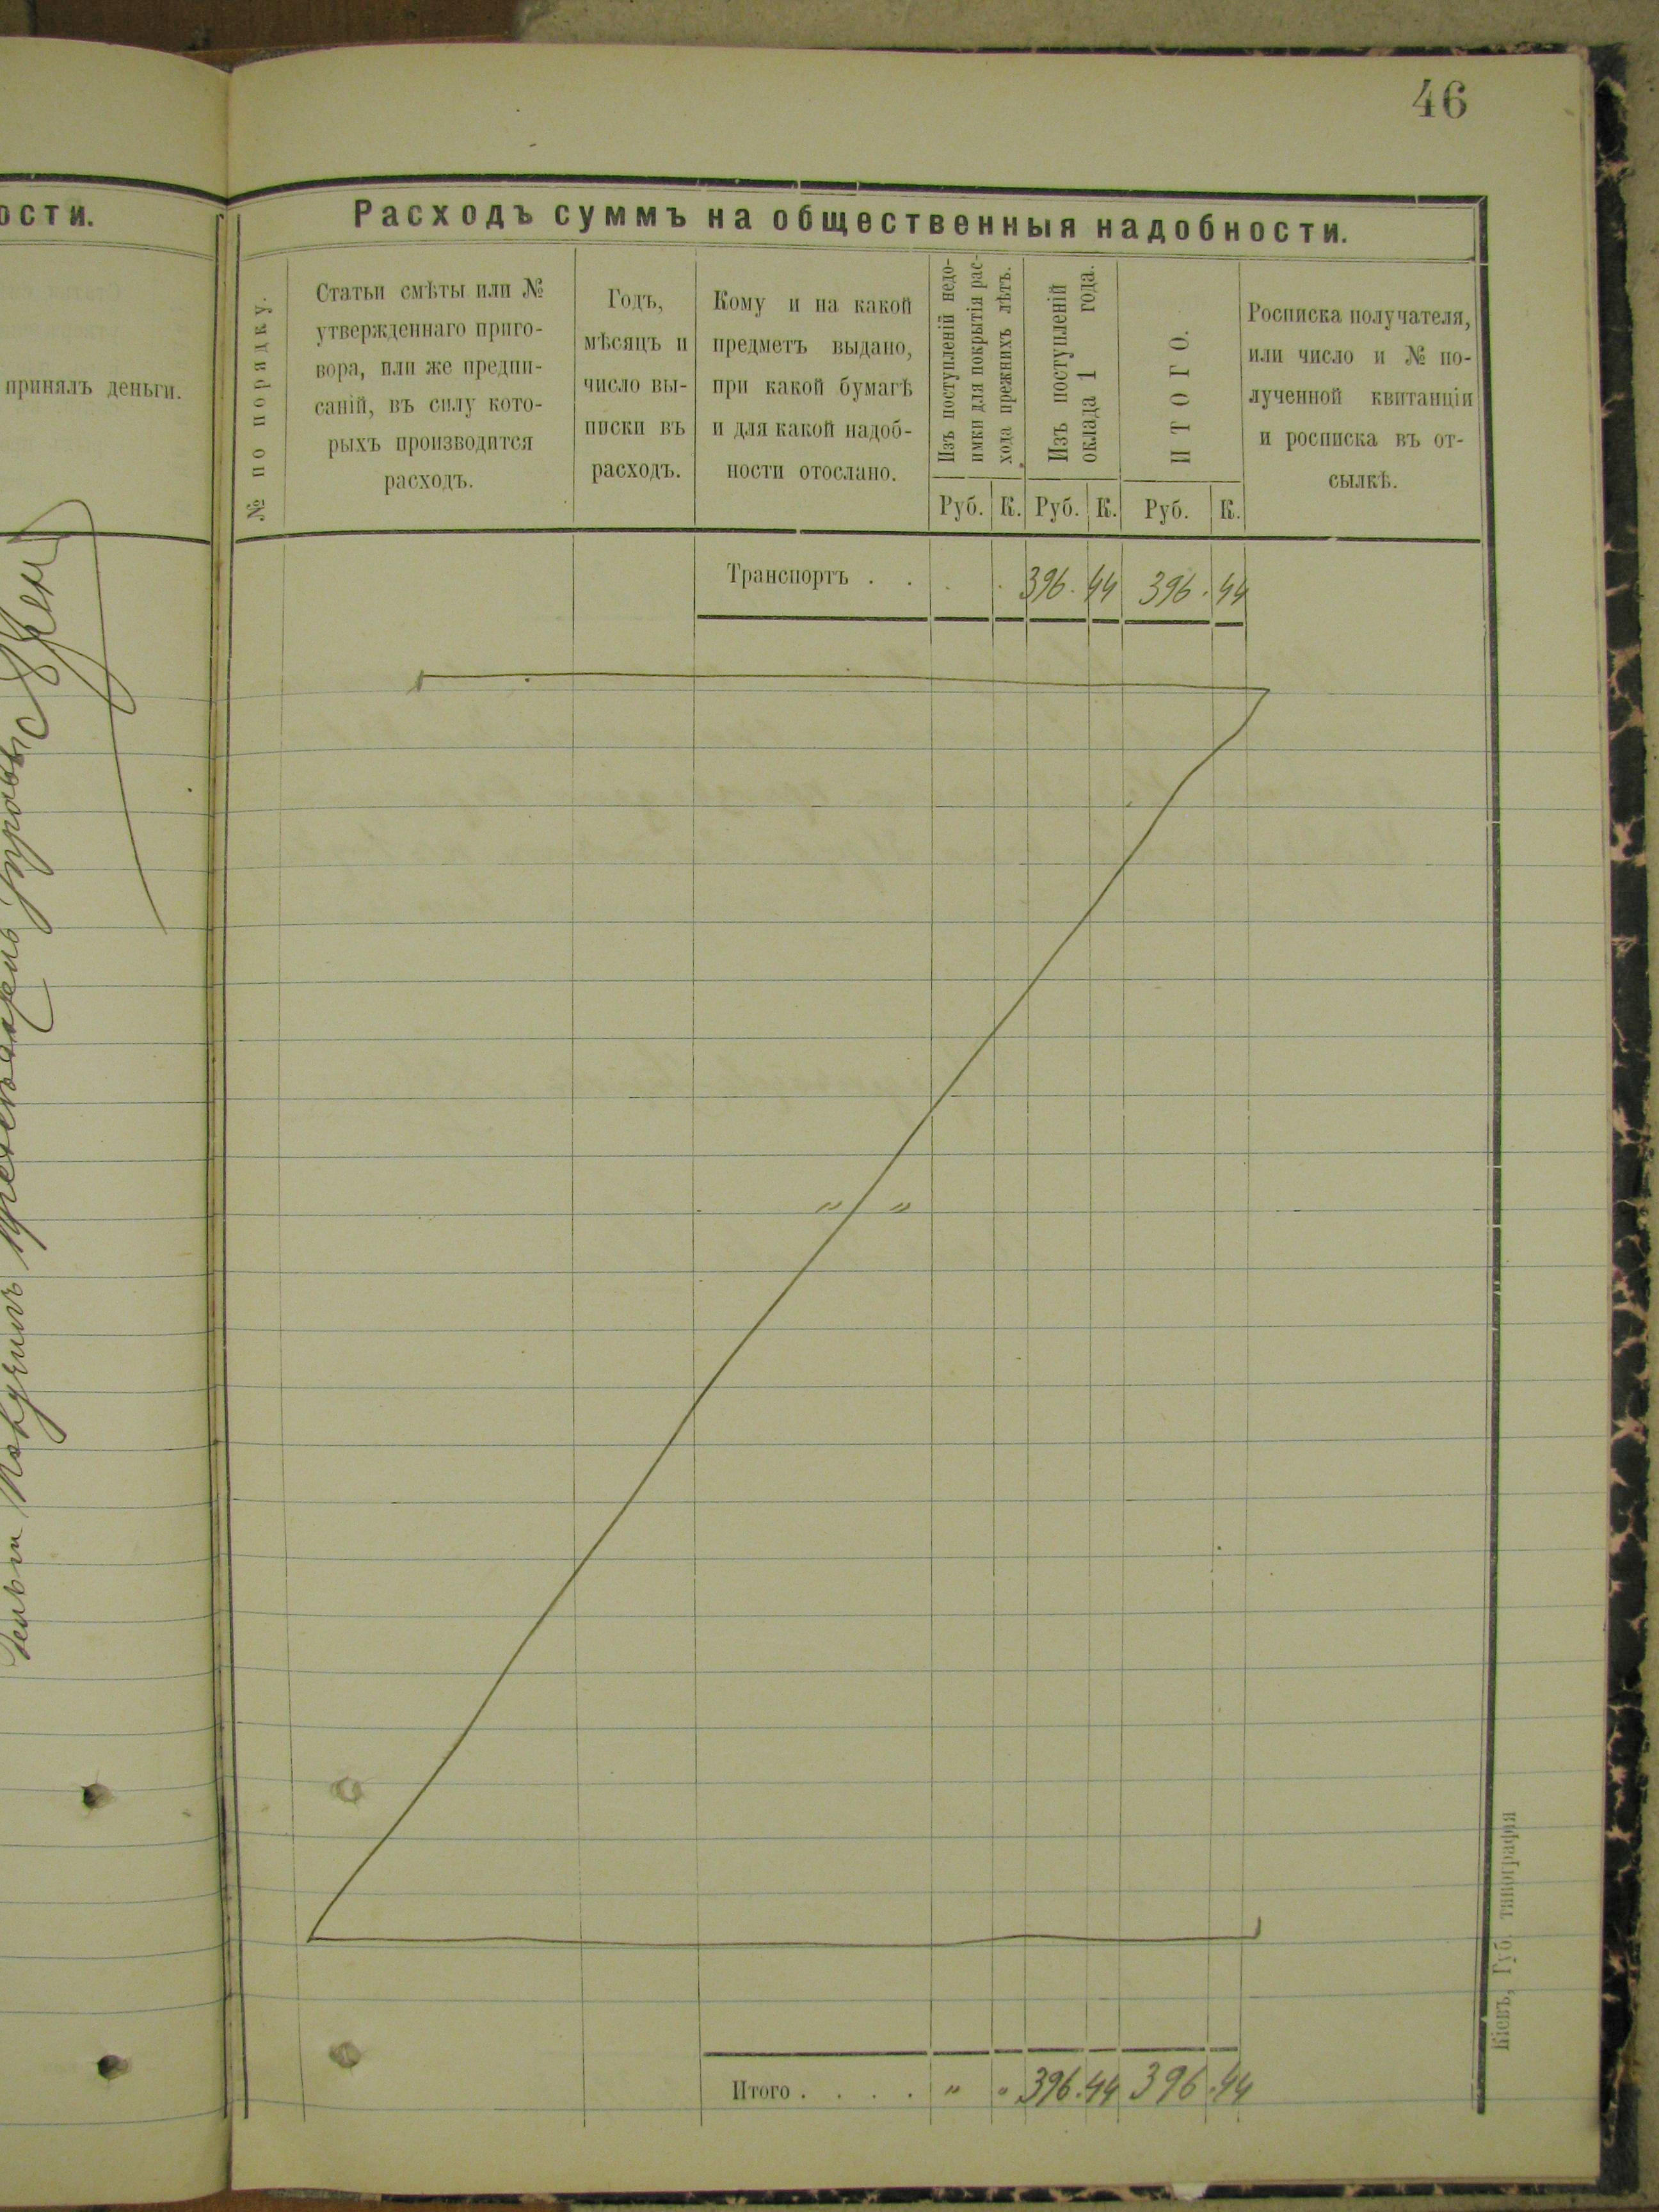 46
ости.
принялъ деньги.
Расходъ суммъ на общественныя надобности.
№ по порядку.
Статьи смѣты или №
утвержденнаго приго-
вора, или же предпи-
саній, въ силу кото-
рыхъ производится
расходъ.
Годъ,
мѣсяцъ и
число вы-
писки въ
расходъ.
Кому и на какой
предметъ выдано,
при какой бумагѣ
и для какой надоб-
ности отослано.
Изъ поступленій недо-
имки для покрытія рас-
хода прежнихъ лѣтъ.
Изъ поступленій
оклада 1 года.
ИТОГО.
Росписка получателя,
или число и № по-
лученной квитанціи
и росписка въ от-
сылкѣ.
Руб. К. Руб. К. Руб. К.
Транспортъ . . . . 396. 44 396. 44
" "
Итого . . . . " " 396. 44 396. 44
Кіевъ, Губ. типографія